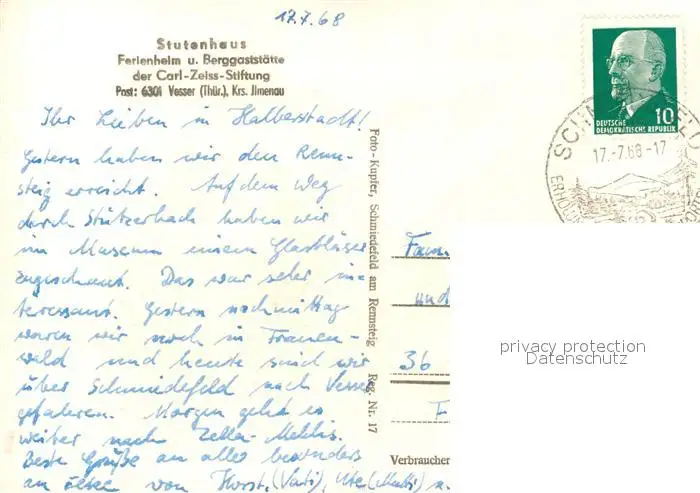 17.7.68
Stutenhaus
Ferienheim u. Berggaststätte
der Carl-Zeiss-Stiftung
Post: 6301 Vesser (Thür.), Krs. Jlmenau
Ihr Lieben in Halberstadt!
Gestern haben wir den Renn-
steig erreicht. Auf dem Weg
durch Stützerbach haben wir
im Museum einem Glasbläser
zugeschaut. Das war sehr in-
teressant. Gestern nachmittag
waren wir noch in Frauen-
wald und heute sind wir
über Schmiedefeld nach Vesser
gefahren. Morgen geht es
weiter nach Zella-Mehlis.
Beste Grüße an alle besonders
an von Horst, (Vati), Ute (Mutti) u.
Foto-Kupfer, Schmiedefeld am Rennsteig Reg. Nr. 17
10
DEUTSCHE
DEMOKRATISCHE REPUBLIK
17.-7.68-17
Fam.
und
36
F
Verbraucher
privacy protection
Datenschutz